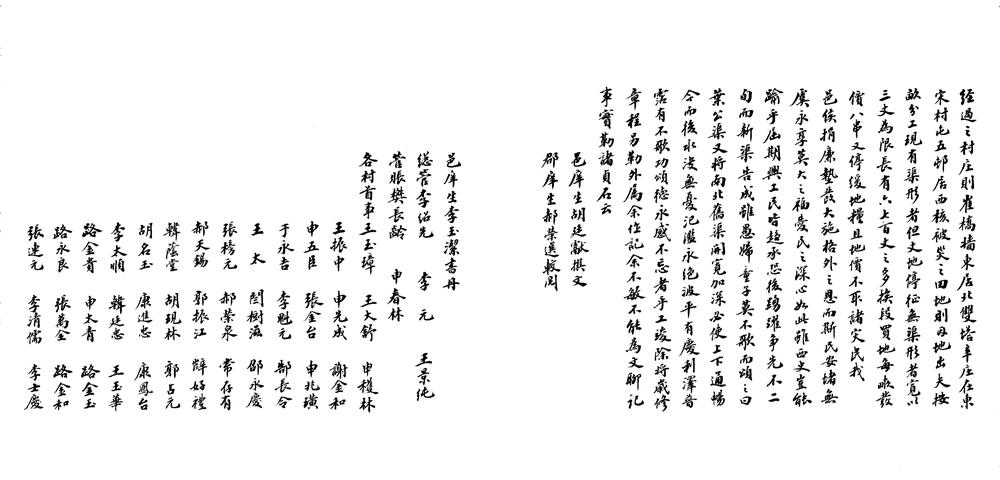 經過之村庄則崔橋墻東居北雙塔辛庄在東
宋村屯五邨居西核被災之田地則因地出夫按
畝分工現有渠形者但丈地停征無渠形者寬以
三丈為限長有六七百丈之多挨段買地每畝發
價八串又停緩地糧且地價不取諸災民我
邑侯捐廉墊發大施格外之恩而斯民安堵無
虞永享莫大之福憂民之深心如此雖西史豈能
踰乎屆期興工民皆趋承恐後踴躍争先不二
旬而新渠告成雖愚婦童子莫不歌而頌之曰
葉公渠又將南北舊渠開寬加深必使上下通暢
今而後水浚無憂汜濫永絕波平有慶利澤普
霑有不歌功頌德永感不忘者乎工竣除將歲修
章程另勒外属余作記余不敏不能為文聊記
事實勒諸貞石云
邑庠生胡廷獻撰文
郡庠生郝榮選校閱
邑庠生李玉潔書丹
總管李紹先 李元 王景純
管賬樊長齡 申春林
各村首事王玉璋 王大舒 申穫林
王振中 申先成 謝金和
申五臣 張金台 申兆璜
于永吉 李魁元 郜長令
王太 閆樹滋 邵永慶
張榜元 郝榮泉 常存有
郝天錫 郭振江 薛好禮
韓蔭堂 胡現林 郭占元
胡名玉 康進忠 康鳳台
李太順 韓廷忠 王玉華
路金貴 申太青 路金玉
路永良 張萬全 路金和
張連元 李清儒 李士慶